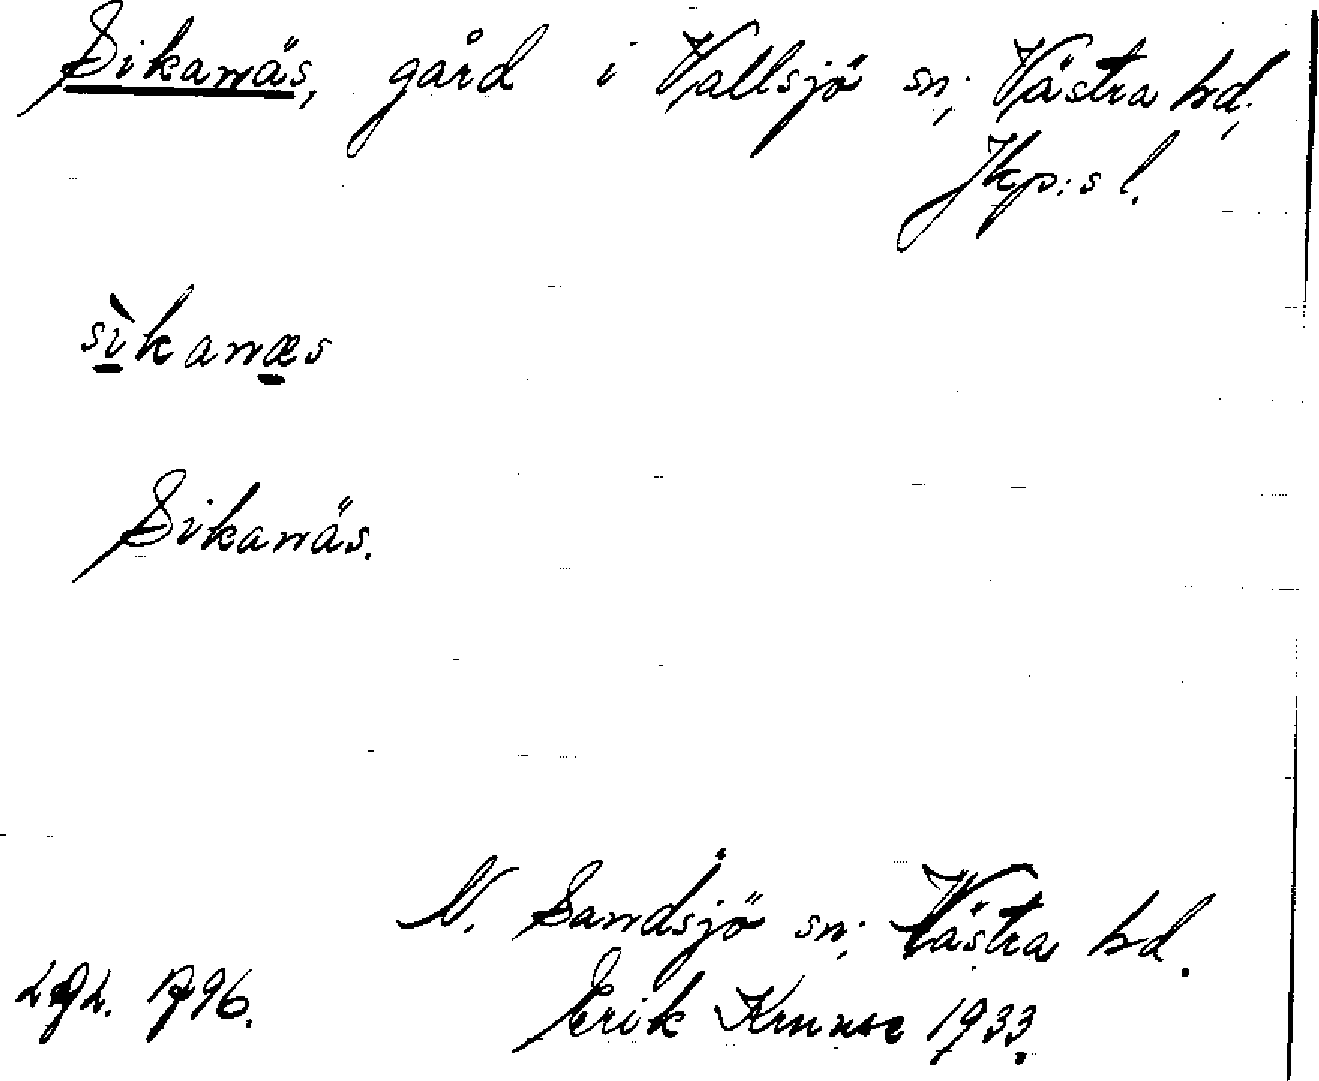 Sikanäs, gård i Vallsjö sn; Västra hd;
Jkp:s l.
sìkanæs
Sikanäs.
N. Sandsjö sn; Västra hd.
1796.
Erik 1933.